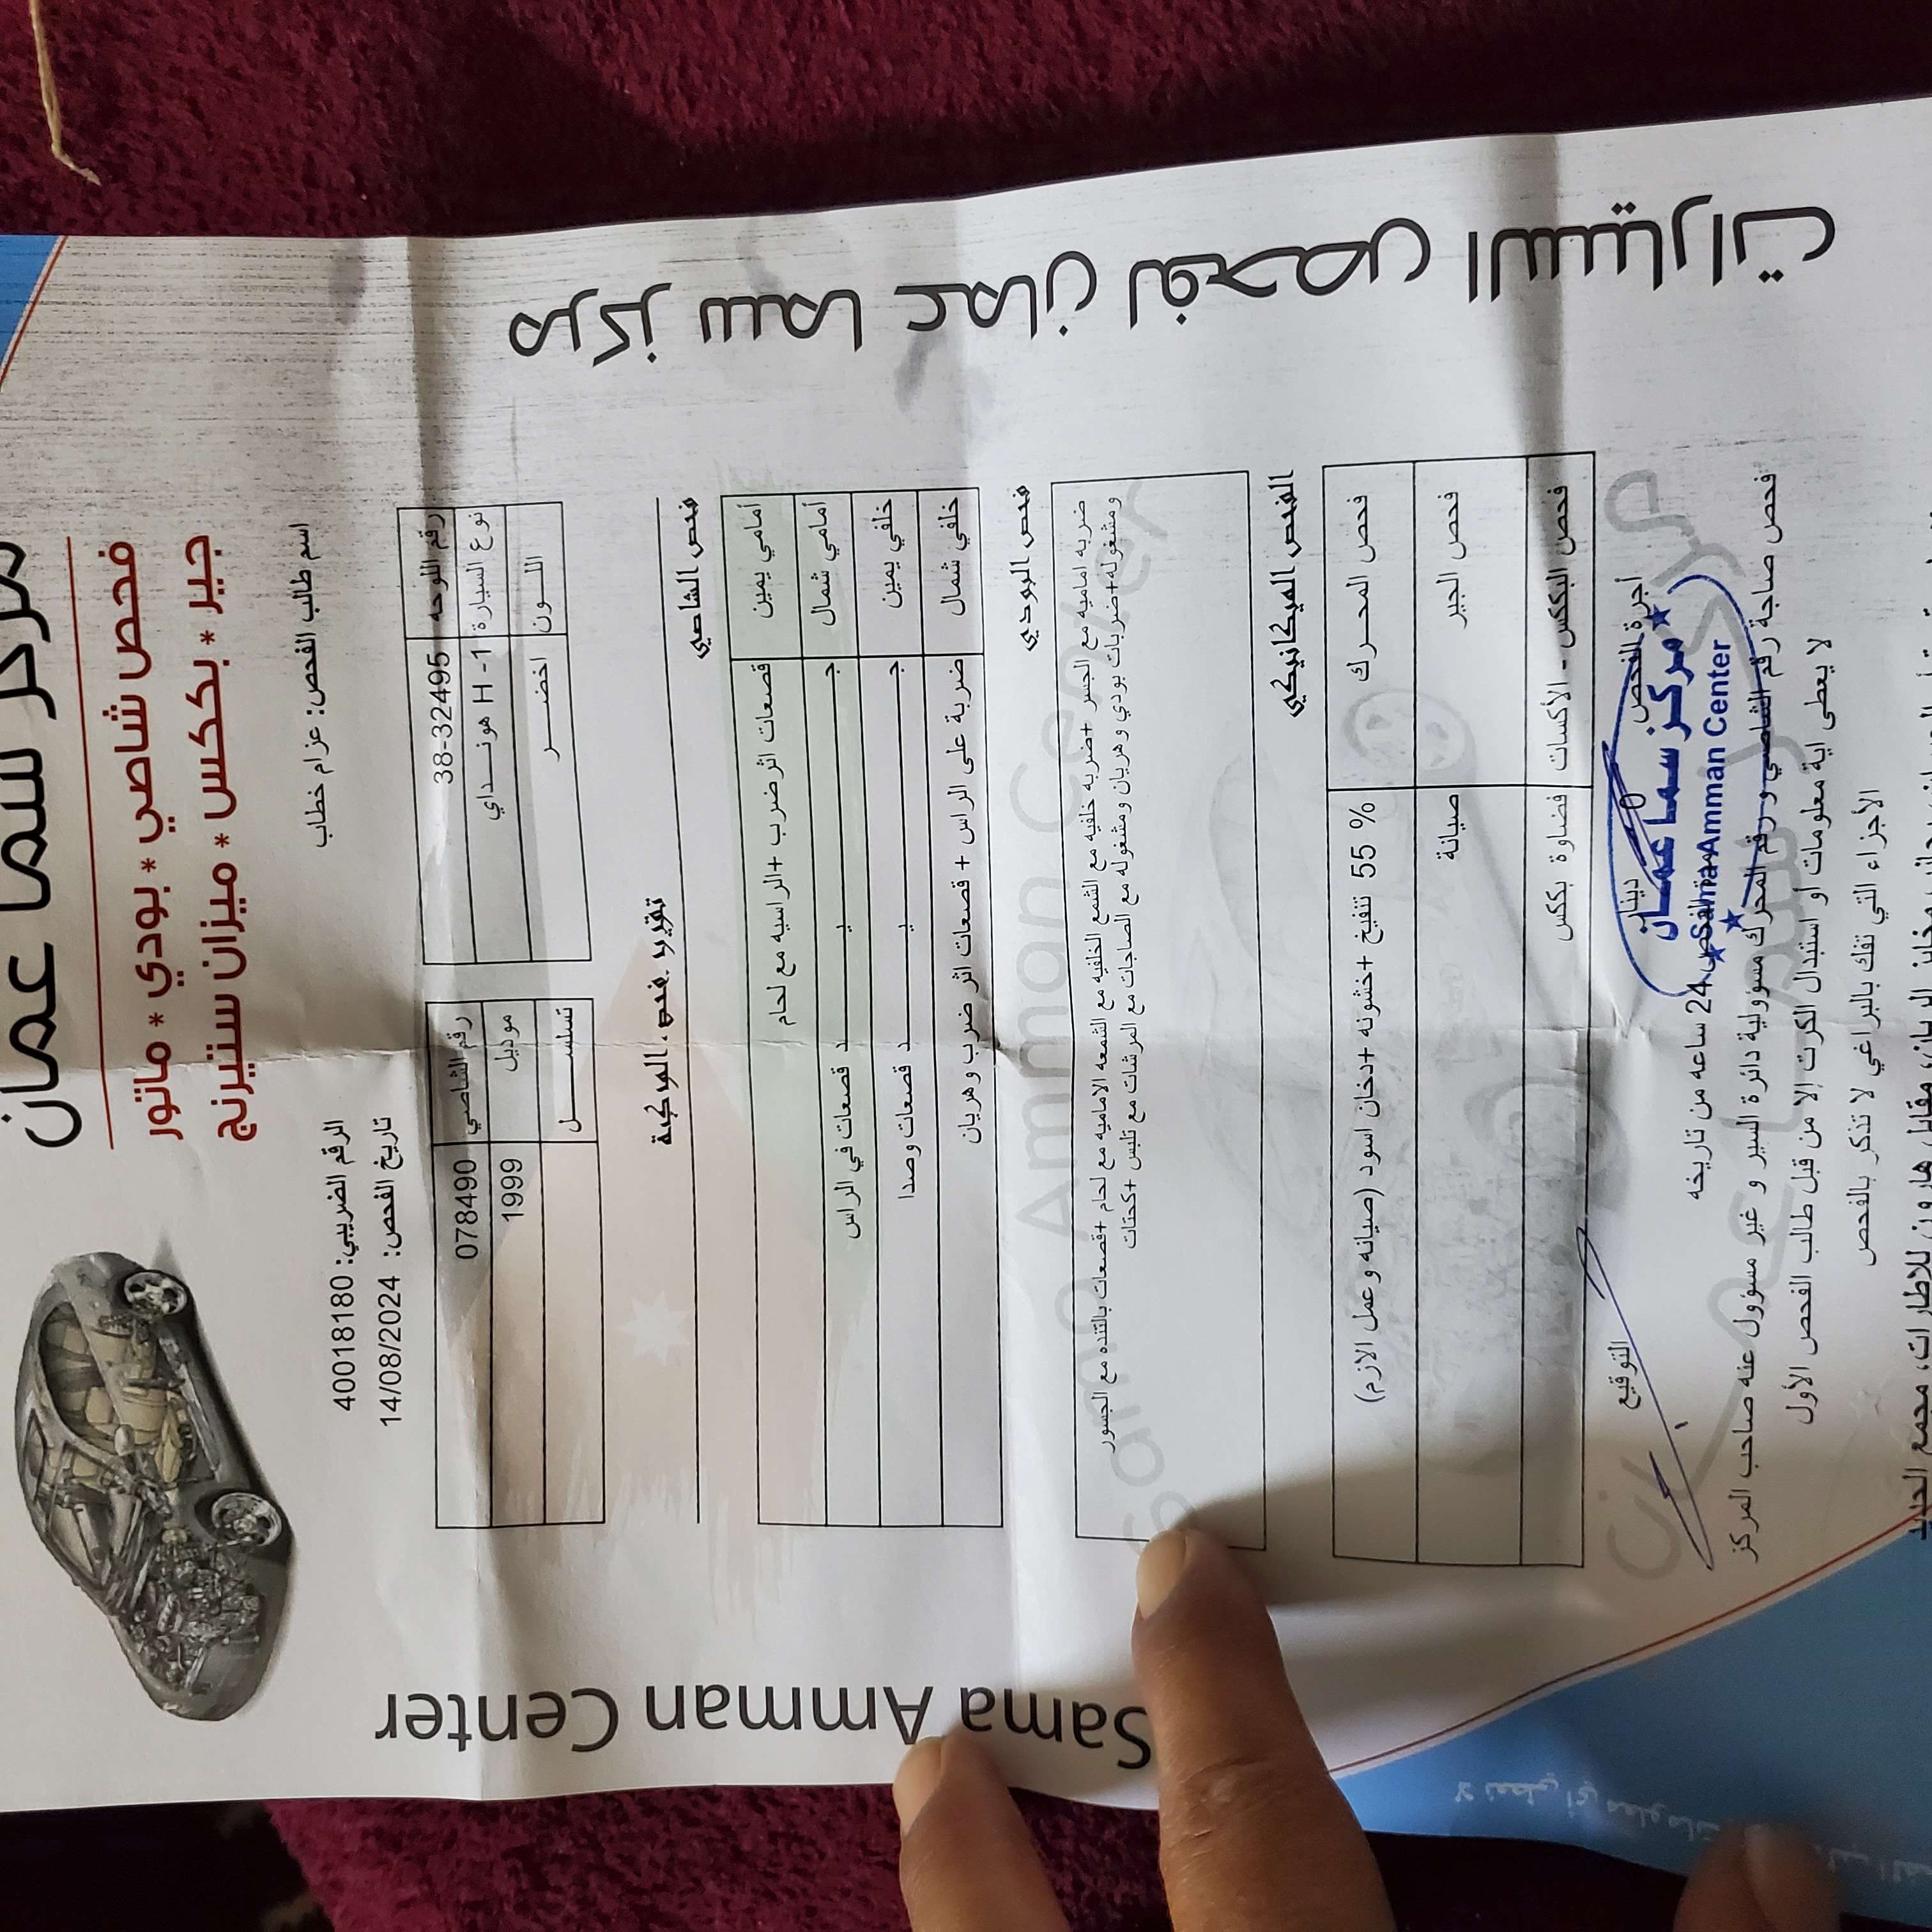 مركز سما عمان
فحص شاصي * بودي * ماتور
جير * بككس * ميزان ستيرنج
اسم طالب الفحص: عزام خطاب
الرقم الضريبي: 40018180
تاريخ الفحص: 14/08/2024
رقم اللوحه 38-32495 رقم الشاصي 078490
نوع السيارة H -1 هونــــداي موديل 1999
اللـــون اخضـــــر تسلســــــل
تقرير فحص المركبة
فحص الشاصي
أمامي يمين قصعات اثر ضرب +الراسيه مع لحام
أمامي شمال جــــــــيــــــــد قصعات في الراس
خلفي يمين جــــــــيــــــــد قصعات وصدا
خلفي شمال ضربة على الراس + قصعات اثر ضرب وهريان
فحص البودي
ضربه اماميه مع الجسر +ضربه خلفيه مع الشمع الخلفيه مع الشمعه الاماميه مع لحام +قصعات بالتنده مع الجسور
ومشغوله+ضربات بودي وهريان ومشغوله مع الصاجات مع المرشات مع تلبس +كحتات
الفحص الميكانيكي
فحص المحـــرك 55 % تنفيخ +خشونه +دخان اسود (صيانه وعمل الازم)
فحص الجير صيانة
فحص البككس - الأكسات فضاوة بككس
أجرة الفحص دينار التوقيع
مركز سما عمان
Sama Amman Center
24 ساعه من تاريخه
فحص صاجة رقم الشاصي ورقم المحرك مسؤولية دائرة السير و غير مسؤول عنه صاحب المركز
لا يعطى اية معلومات أو استبدال الكرت إلا من قبل طالب الفحص الأول
الأجزاء التي تفك بالبراغي لا تذكر بالفحص
مركز سما عمان لفحص السيارات
Sama Amman Center
Sama Amman Center
مركز سما عمان